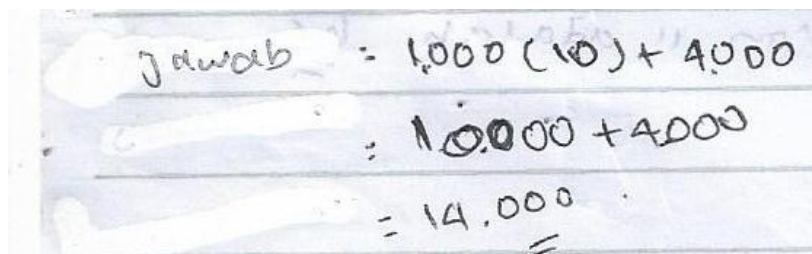 Jawab = 1.000 (10) + 4.000
= 10.000 + 4.000
= 14.000